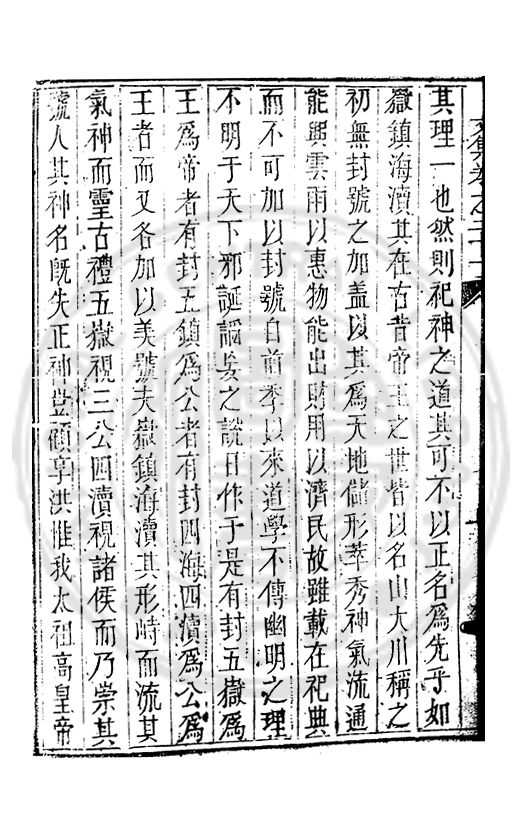 其理一也然則祀神之道其可不以正名爲先乎如
嶽鎮海瀆其在古昔帝王之世皆以名山大川稱之
初無封號之加盖以其爲天地儲形萃秀神氣流通
能興雲雨以惠物能出財用以濟民故雖載在祀典
而不可加以封號自前季以來道學不傳幽明之理
不明于天下邪誕謟妄之說日作于是有封五嶽爲
王爲帝者有封五鎮爲公者有封四海四瀆爲公爲
王者而又各加以美號夫嶽鎮海瀆其形峙而流其
氣神而靈古禮五嶽視三公四瀆視諸侯而乃崇其
號人其神名旣失正神豈顧享洪惟我太祖高皇帝